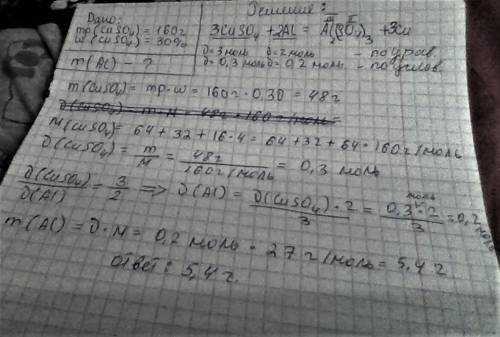 Дано:
mр(CuSO₄) = 160г
w(CuSO₄) = 30%
m(Al) - ?
Решение:
3CuSO₄ + 2Al = Al₂(SO₄)₃ + 3Cu
ν=3моль ν=2моль - по урав.
ν=0,3моль ν=0,2моль - по услов.
m(CuSO₄) = mр·w = 160г·0,30 = 48г
M(CuSO₄) = 64 + 32 + 16·4 = 64 + 32 + 64 = 160г/моль
ν(CuSO₄) = m/M = 48г/160г/моль = 0,3 моль
ν(CuSO₄)/ν(Al) = 3/2 => ν(Al) = ν(CuSO₄)·2/3 = 0,3 моль·2/3 = 0,2 моль
m(Al) = ν·M = 0,2 моль · 27 г/моль = 5,4 г.
Ответ: 5,4 г.